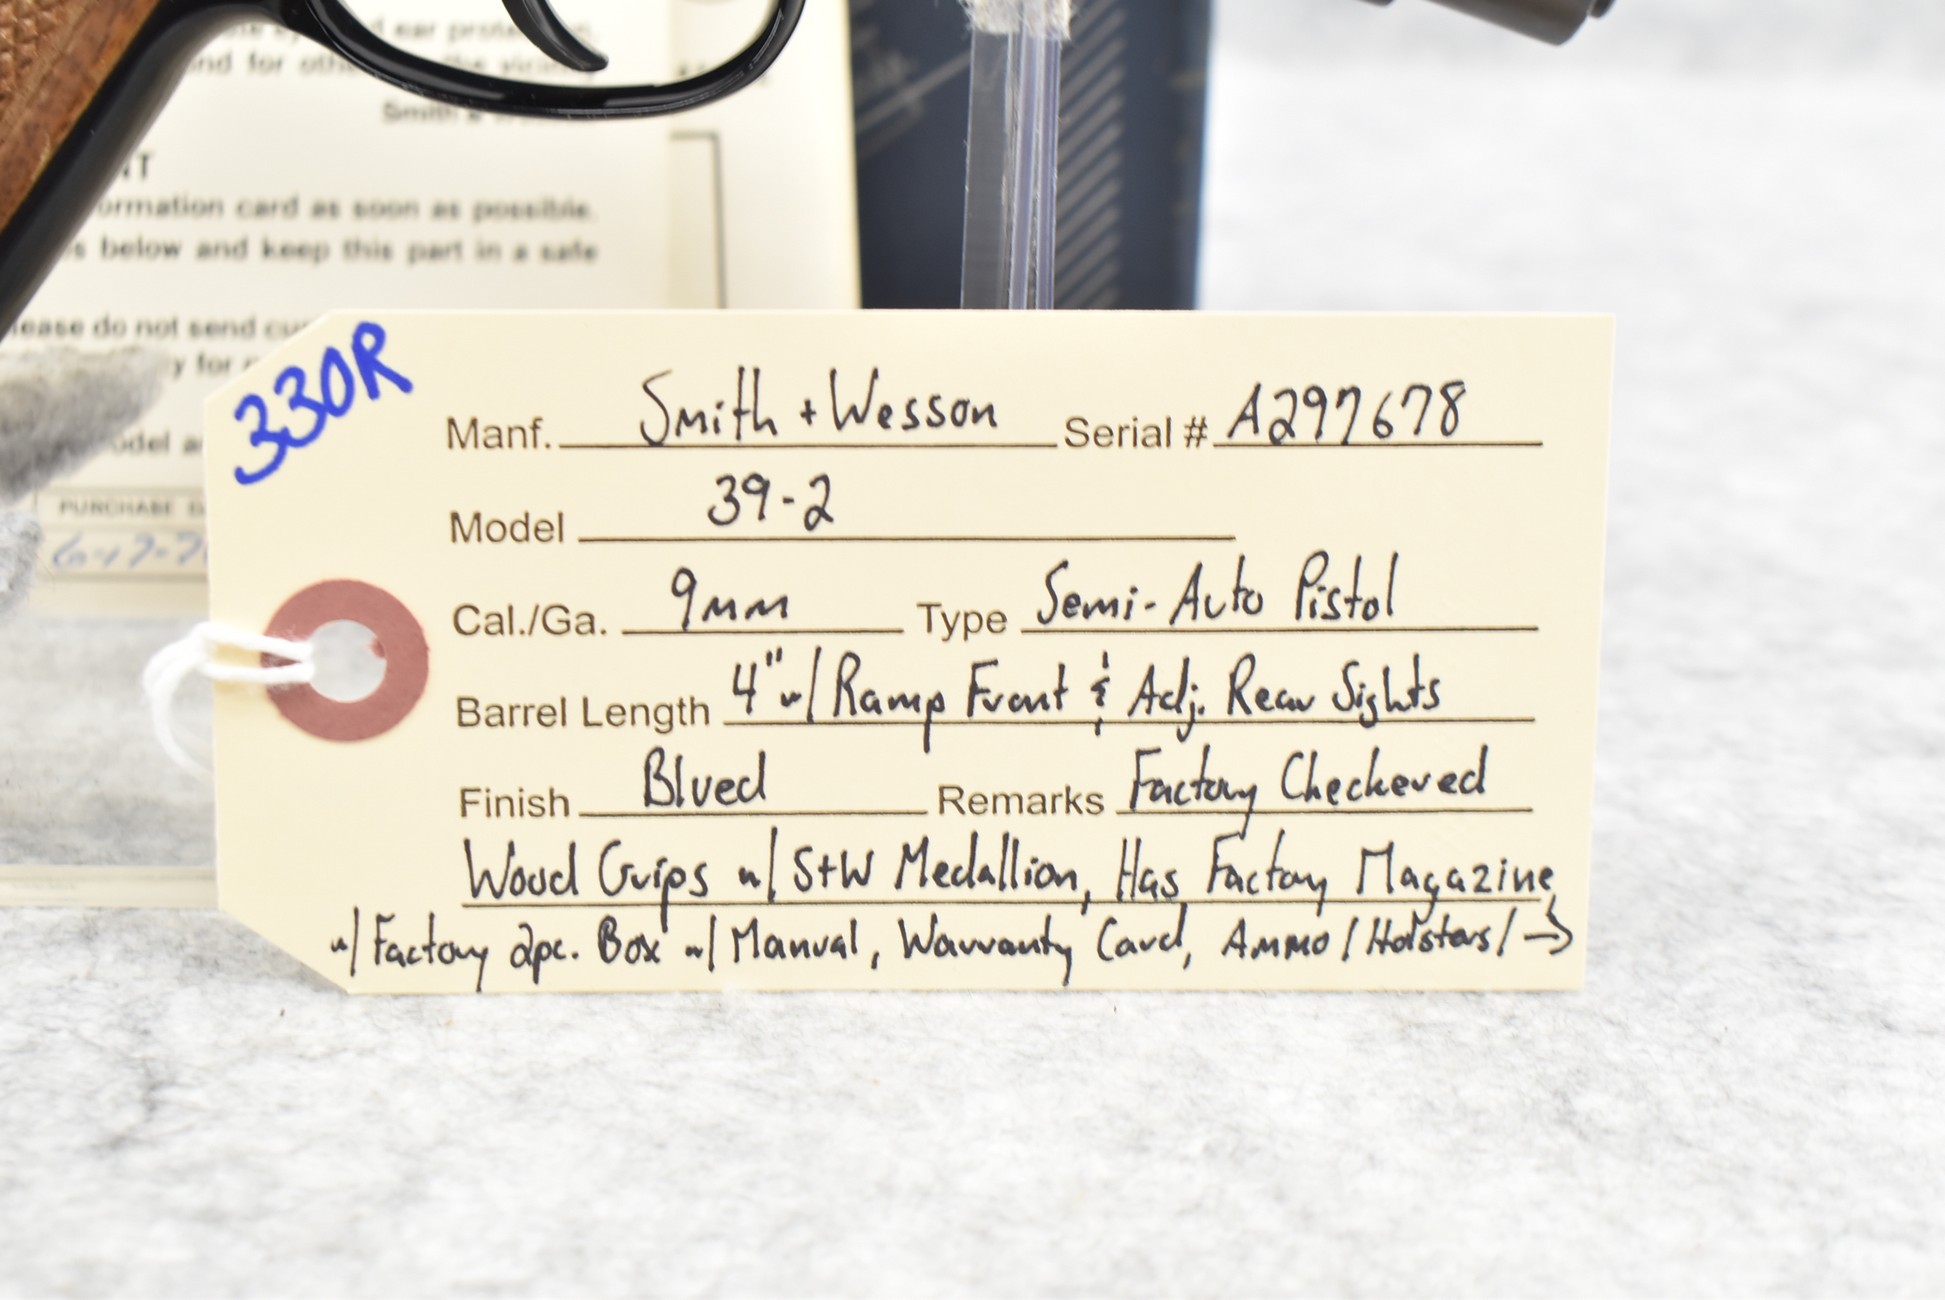 ear protection,
and for the vicinity
Smith &
NT
ormation card as soon as possible.
s below and keep this part in a safe
lease do not send
y for
odel
PURCHASE
330R
Manf. Smith + Wesson Serial # A297678
Model 39-2
Cal./Ga. 9mm Type Semi-Auto Pistol
Barrel Length 4" w/ Ramp Front & Adj. Rear Sights
Finish Blued Remarks Factory Checkered
Wood Grips w/ S+W Medallion, Has Factory Magazine
w/ Factory 2pc. Box w/ Manual, Warranty Card, Ammo / Holsters / →